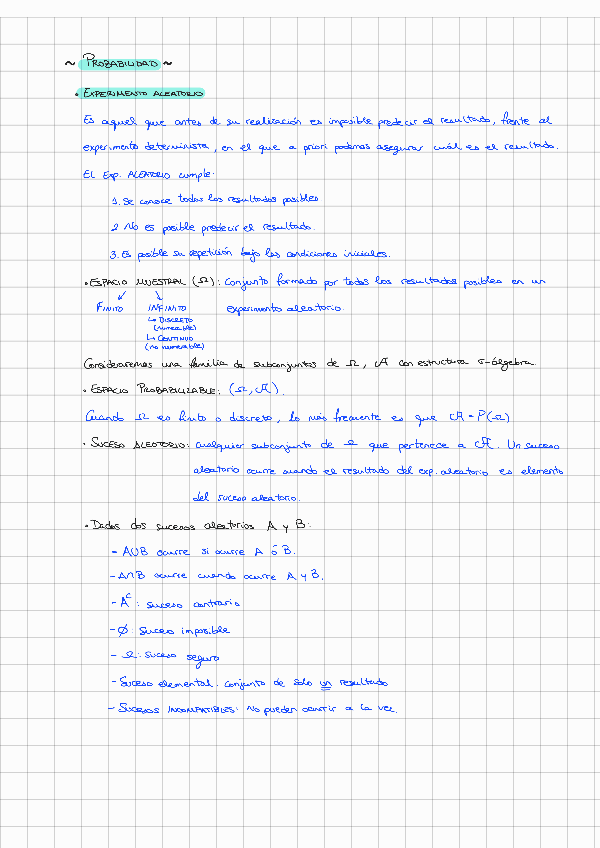 ~ PROBABILIDAD ~
• EXPERIMENTO ALEATORIO
Es aquel que antes de su realización es imposible predecir el resultado, frente al
experimento determinista, en el que a priori podemos asegurar cuál es el resultado.
El Exp. ALEATORIO cumple:
1. Se conoce todos los resultados posibles
2. No es posible predecir el resultado.
3. Es posible su repetición bajo las condiciones iniciales.
• ESPACIO MUESTRAL (Ω): Conjunto formado por todos los resultados posibles en un
FINITO INFINITO experimento aleatorio.
↳ DISCRETO
(numerable)
↳ CONTINUO
(no numerable)
Consideraremos una familia de subconjuntos de Ω, A con estructura σ-álgebra.
• ESPACIO PROBABILIZABLE: (Ω, A).
Cuando Ω es finito o discreto, lo más frecuente es que A = P(Ω)
• SUCESO ALEATORIO: cualquier subconjunto de Ω que pertenece a A. Un suceso
aleatorio ocurre cuando el resultado del exp. aleatorio es elemento
del suceso aleatorio.
• Dados dos sucesos aleatorios A y B:
- A∪B ocurre si ocurre A ó B.
- A∩B ocurre cuando ocurre A y B.
- Aᶜ: suceso contrario
- Ø: suceso imposible
- Ω: suceso seguro
- Suceso elemental: conjunto de solo un resultado
- SUCESOS INCOMPATIBLES: No pueden ocurrir a la vez.